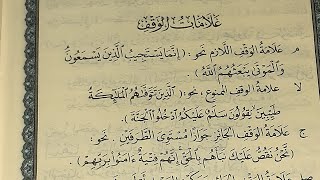 عَلَامَاتُ الوَقْفِ
م عَلَامَةُ الوَقْفِ اللَّازِمِ نَحْوُ : ( إِنَّمَا يَسْتَجِيبُ الَّذِينَ يَسْمَعُونَ
وَالْمَوْتَى يَبْعَثُهُمُ اللَّهُ ) .
لا عَلَامَةُ الوَقْفِ المَمْنُوعِ نَحْوُ : ( الَّذِينَ تَتَوَفَّاهُمُ الْمَلَائِكَةُ
طَيِّبِينَ يَقُولُونَ سَلَامٌ عَلَيْكُمُ ادْخُلُوا الْجَنَّةَ ) .
ج عَلَامَةُ الوَقْفِ الجَائِزِ جَوَازًا مُسْتَوِيَ الطَّرَفَيْنِ . نَحْوُ :
( نَّحْنُ نَقُصُّ عَلَيْكَ نَبَأَهُم بِالْحَقِّ إِنَّهُمْ فِتْيَةٌ ءَامَنُوا بِرَبِّهِمْ )